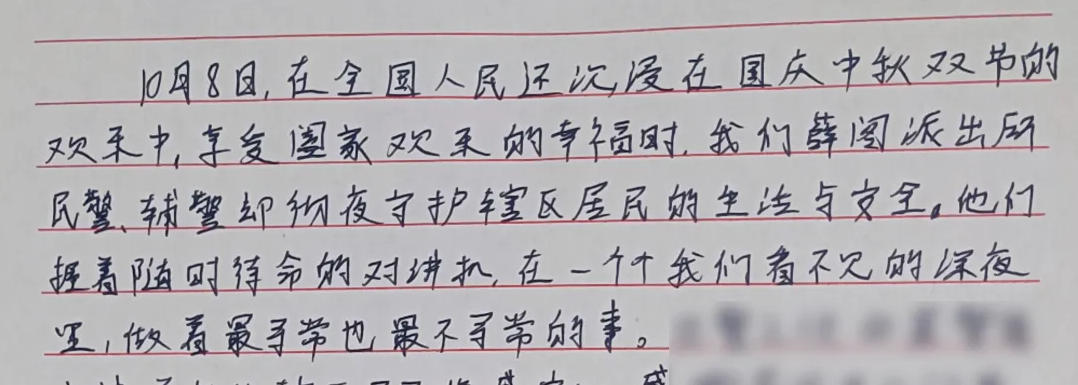 10月8日,在全国人民还沉浸在国庆中秋双节的
欢乐中,享受阖家欢乐的幸福时,我们薛阁派出所
民警、辅警却彻夜守护辖区居民的生活与安全。他们
握着随时待命的对讲机,在一个个我们看不见的深夜
里,做着最寻常也最不寻常的事。